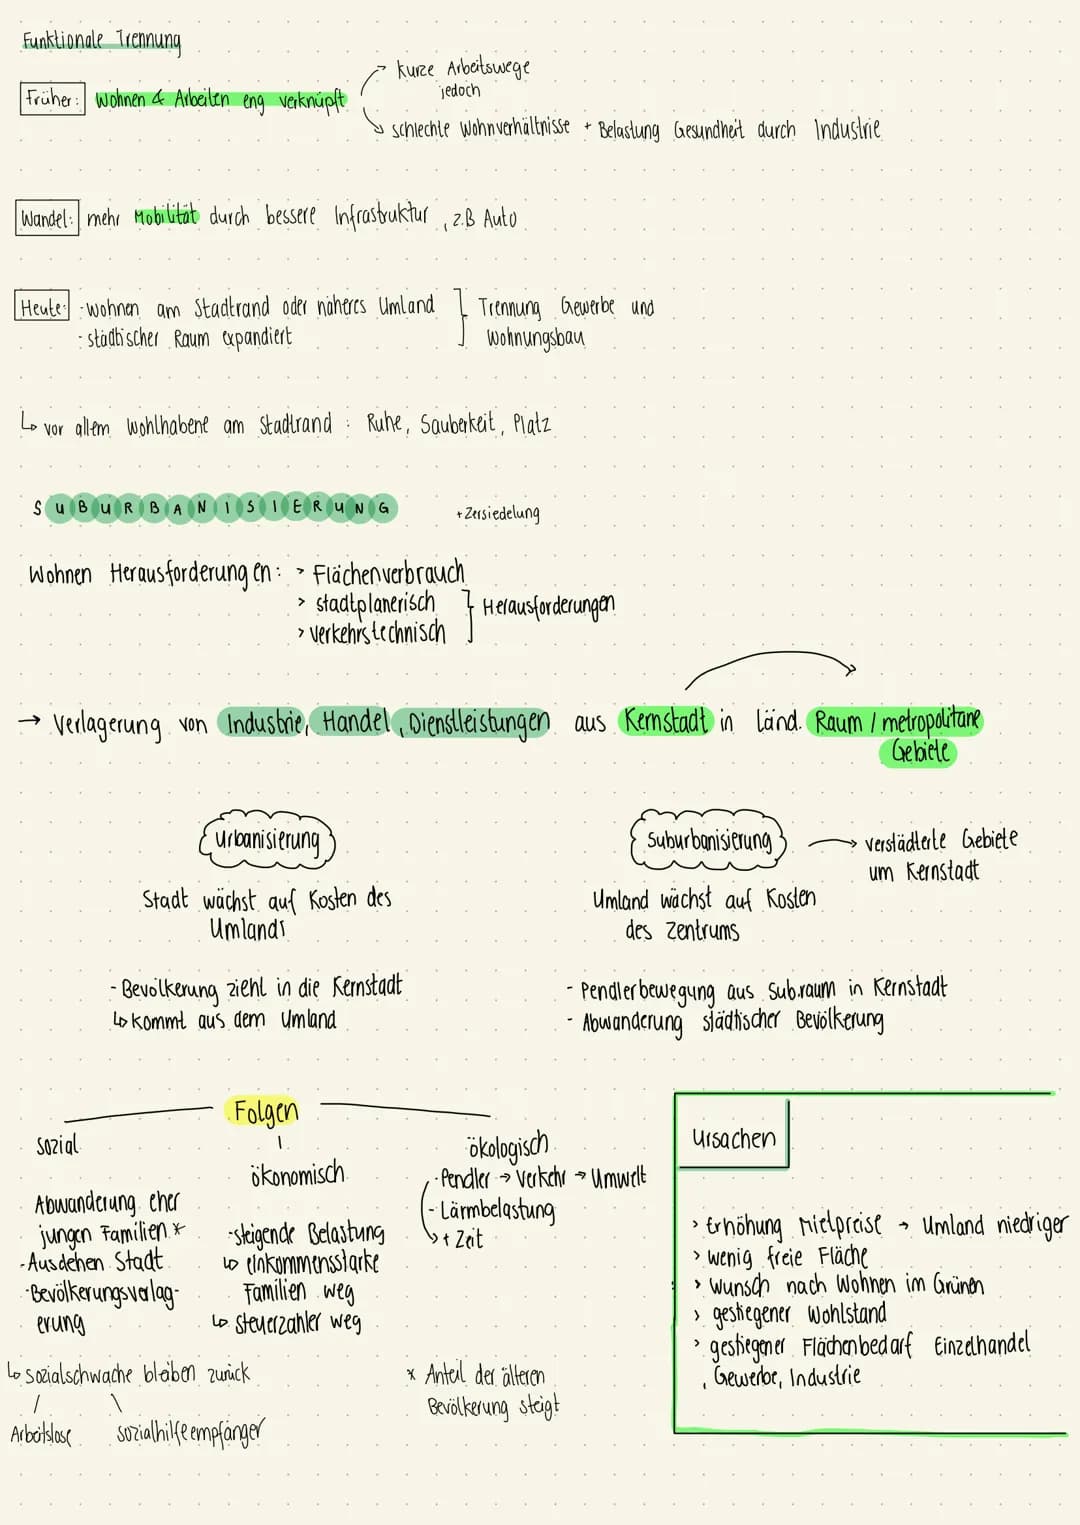 Funktionale Trennung
Früher: Wohnen & Arbeiten eng verknüpft
→ kurze Arbeitswege
jedoch
→ schlechte Wohnverhältnisse + Belastung Gesundheit durch Industrie
Wandel: mehr Mobilität durch bessere Infrastruktur, z.B Auto
Heute: - wohnen am Stadtrand oder näheres Umland } Trennung Gewerbe und
- städtischer Raum expandiert Wohnungsbau
↳ vor allem Wohlhabene am Stadtrand : Ruhe, Sauberkeit, Platz
SUBURBANISIERUNG + Zersiedelung
Wohnen Herausforderungen: > Flächenverbrauch
> stadtplanerisch } Herausforderungen
> verkehrstechnisch
→ Verlagerung von Industrie, Handel, Dienstleistungen aus Kernstadt in Länd. Raum / metropolitane
Gebiete
Urbanisierung
Stadt wächst auf Kosten des
Umlands
- Bevölkerung zieht in die Kernstadt
↳ kommt aus dem Umland
Suburbanisierung → verstädterte Gebiete
um Kernstadt
Umland wächst auf Kosten
des Zentrums
- Pendlerbewegung aus Sub.raum in Kernstadt
- Abwanderung städtischer Bevölkerung
Folgen
Sozial
Abwanderung eher
jungen Familien *
- Ausdehen Stadt
- Bevölkerungsverlag-
erung
↳ Sozialschwache bleiben zurück
Arbeitslose sozialhilfeempfänger
ökonomisch
- steigende Belastung
↳ einkommensstarke
Familien weg
↳ Steuerzahler weg
ökologisch
- Pendler → Verkehr → Umwelt
- Lärmbelastung
→ + Zeit
* Anteil der älteren
Bevölkerung steigt
Ursachen
> Erhöhung Mietpreise → Umland niedriger
> wenig freie Fläche
> Wunsch nach Wohnen im Grünen
> gestiegener Wohlstand
> gestiegener Flächenbedarf Einzelhandel
, Gewerbe, Industrie